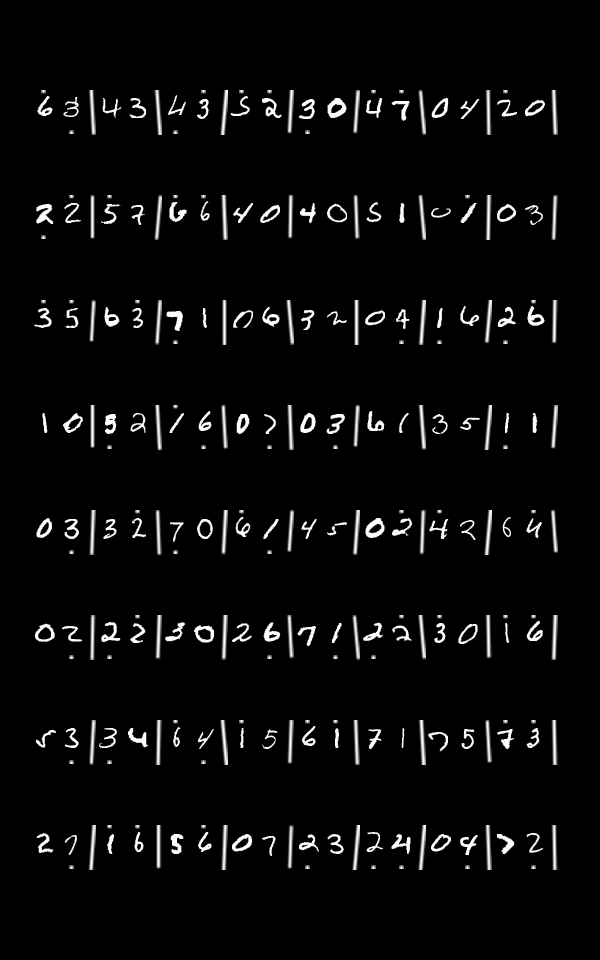 6 3 | 4 3 | 4 3 | 5 2 | 3 0 | 4 7 | 0 4 | 2 0 |
2 2 | 5 7 | 6 6 | 4 0 | 4 0 | 5 1 | 0 1 | 0 3 |
3 5 | 6 3 | 7 1 | 0 6 | 3 2 | 0 4 | 1 6 | 2 6 |
1 0 | 5 2 | 1 6 | 0 7 | 0 3 | 6 1 | 3 5 | 1 1 |
0 3 | 3 2 | 7 0 | 6 1 | 4 5 | 0 2 | 4 2 | 6 4 |
0 2 | 2 2 | 3 0 | 2 6 | 7 1 | 2 2 | 3 0 | 1 6 |
5 3 | 3 4 | 6 4 | 1 5 | 6 1 | 7 1 | 7 5 | 7 3 |
2 7 | 1 6 | 5 6 | 0 7 | 2 3 | 2 4 | 0 4 | 7 2 |